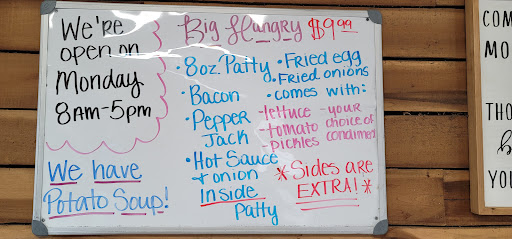 We're
open on
Monday
8AM-5pm
We have
Potato Soup!
Big Hungry $9.99
• 8oz. Patty
• Bacon
• Pepper
Jack
• Hot Sauce
+ onion
Inside
Patty
• Fried egg
• Fried onions
• comes with:
-lettuce -your
-tomato choice of
-pickles condiment
* Sides are
EXTRA! *
COM
MO
THO
YOU